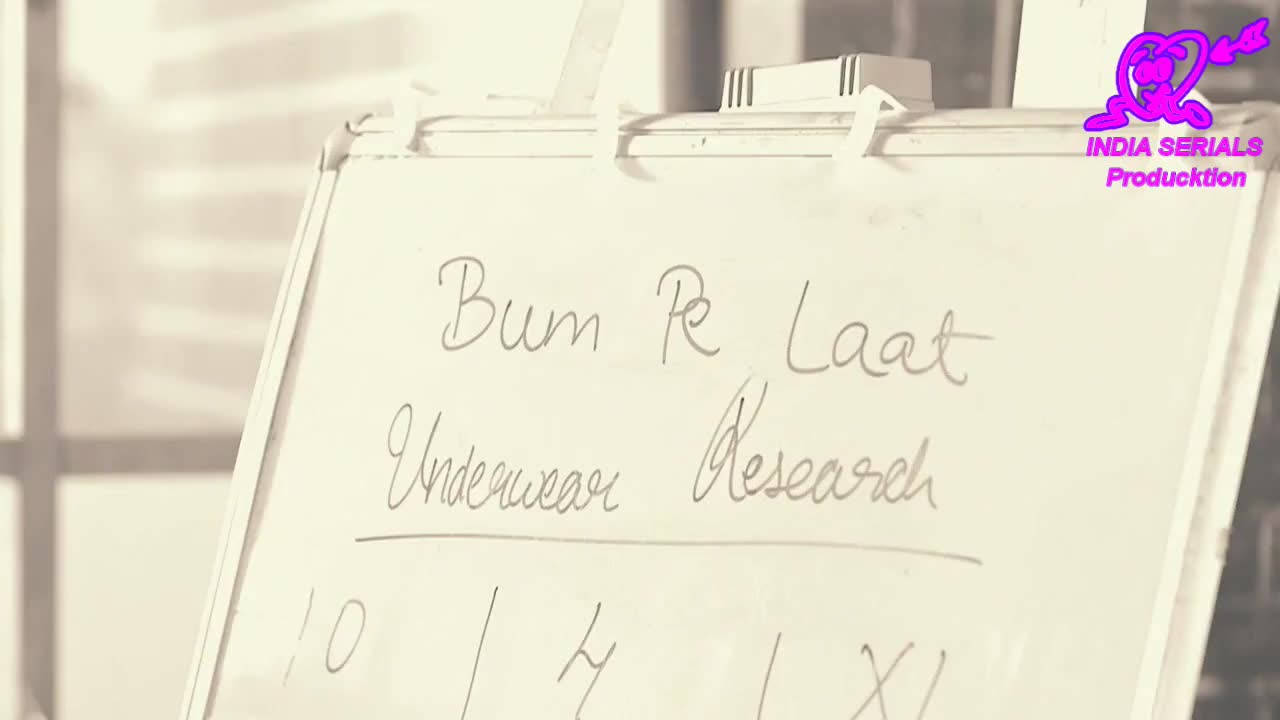 INDIA SERIALS
Producktion
Bum Pe Laat
Underwear Research
10 | 4 | XI